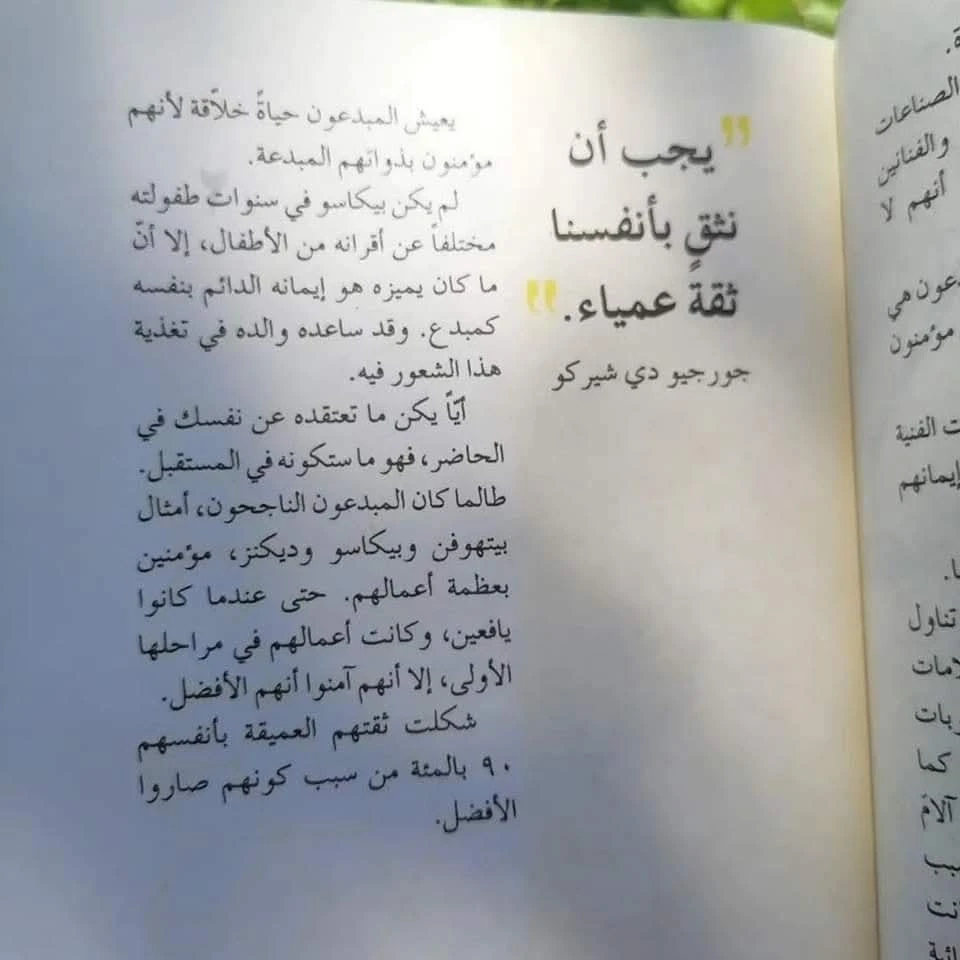 " يجب أن
نثق بأنفسنا
ثقةً عمياء. "
جورجيو دي شيركو
يعيش المبدعون حياةً خلاّقة لأنهم
مؤمنون بذواتهم المبدعة.
لم يكن بيكاسو في سنوات طفولته
مختلفاً عن أقرانه من الأطفال، إلا أنّ
ما كان يميزه هو إيمانه الدائم بنفسه
كمبدع. وقد ساعده والده في تغذية
هذا الشعور فيه.
أيّاً يكن ما تعتقده عن نفسك في
الحاضر، فهو ما ستكونه في المستقبل.
طالما كان المبدعون الناجحون، أمثال
بيتهوفن وبيكاسو وديكنز، مؤمنين
بعظمة أعمالهم. حتى عندما كانوا
يافعين، وكانت أعمالهم في مراحلها
الأولى، إلا أنهم آمنوا أنهم الأفضل.
شكلت ثقتهم العميقة بأنفسهم
٩٠ بالمئة من سبب كونهم صاروا
الأفضل.
الصناعات
والفنانين
أنهم لا
هي
مؤمنون
الفنية
إيمانهم
تناول
كما
آلام